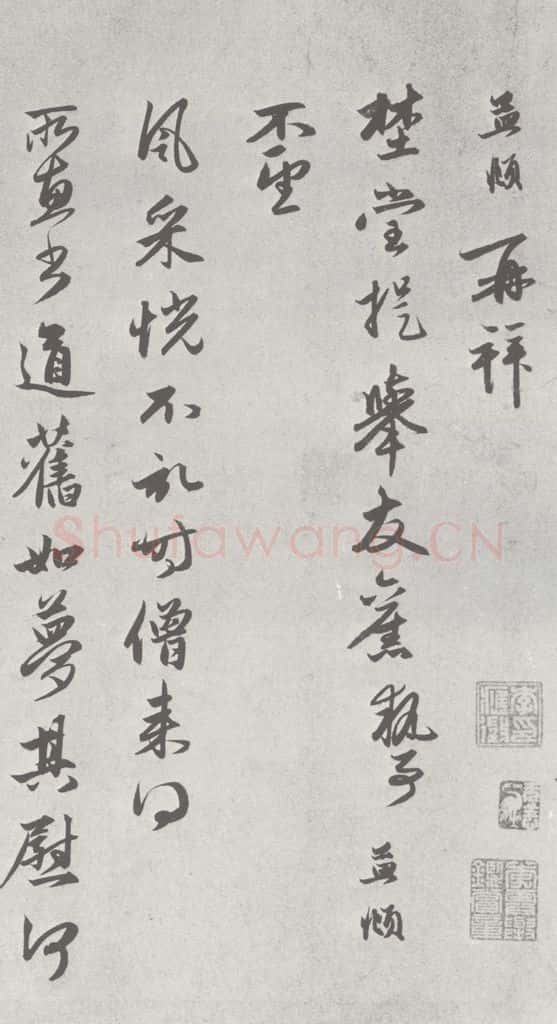 孟頫再拜
埜堂提舉友舊執事孟頫
不望
風采恍不記時僧來得
所惠書道舊如夢其慰何
Shufawang.CN